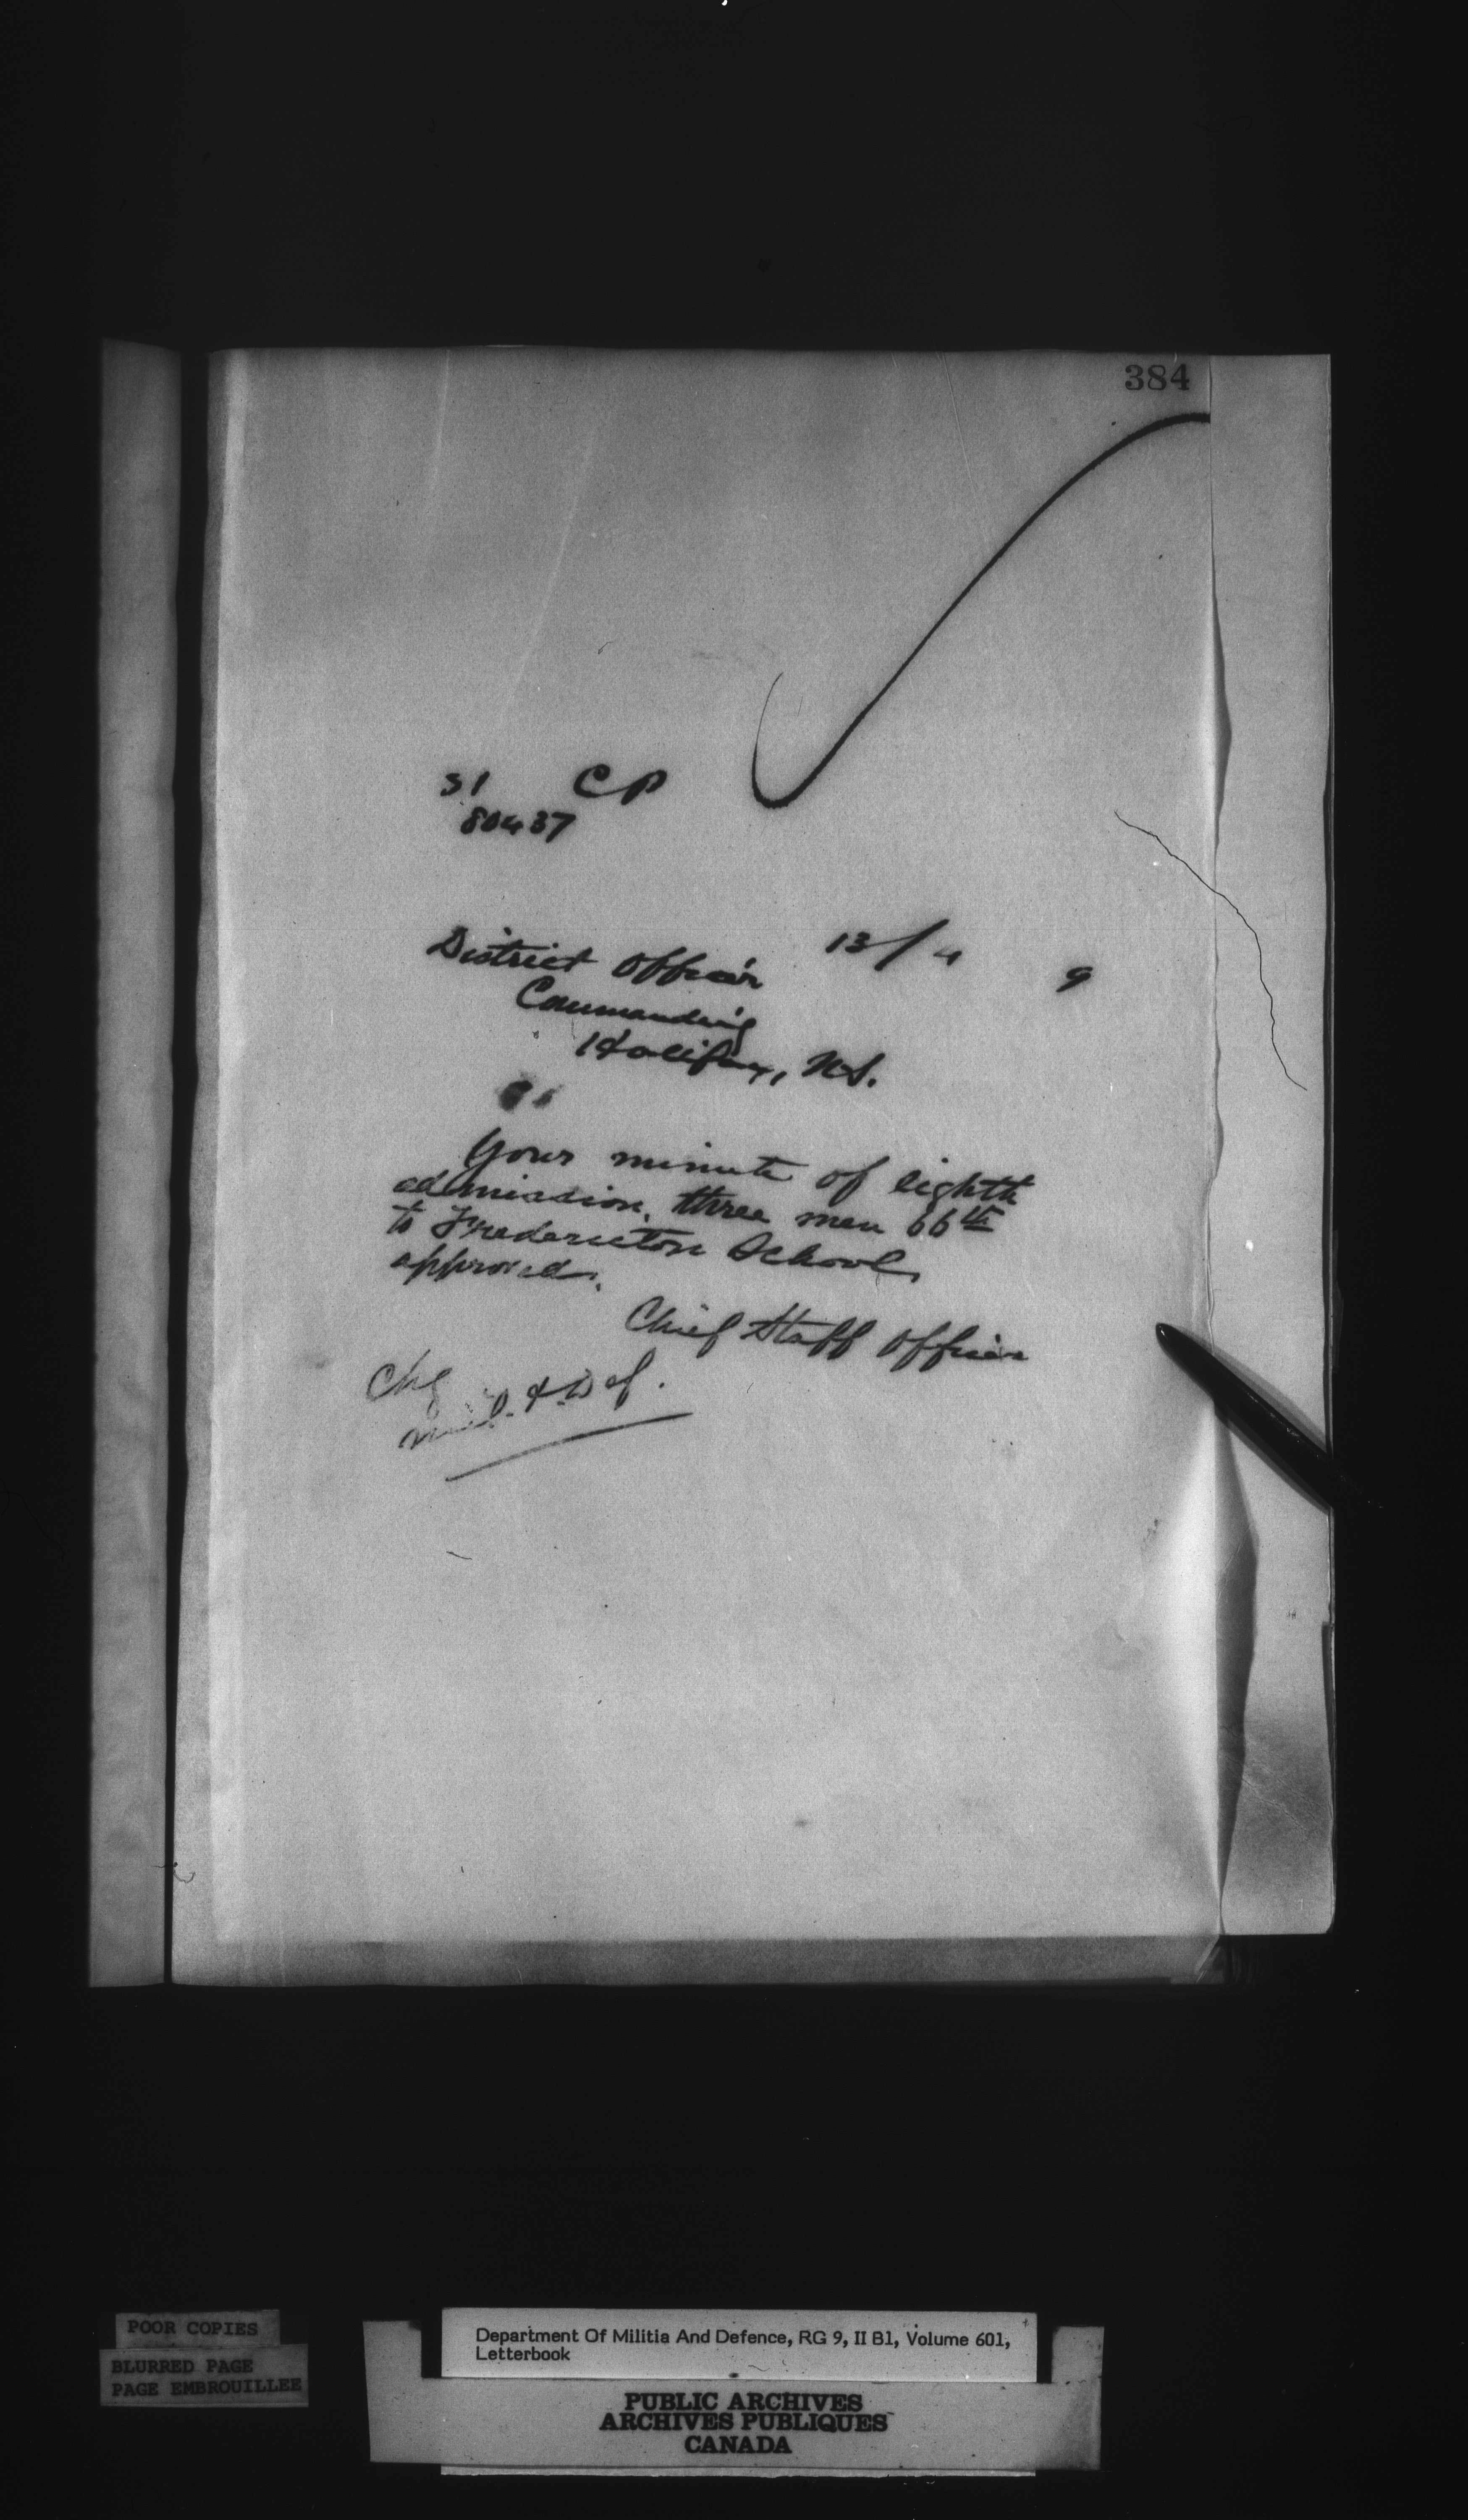 384
31 CP
80437
13/4 9
District Officer
Commanding
Halifax, N.S.
Your minute of eighth
admission, three men 66th
to Fredericton School
approved.
Chief Staff Officer
Chg
Mil. & Def.
POOR COPIES
BLURRED PAGE
PAGE EMBROUILLEE
Department Of Militia And Defence, RG 9, II B1, Volume 601,
Letterbook
PUBLIC ARCHIVES
ARCHIVES PUBLIQUES
CANADA